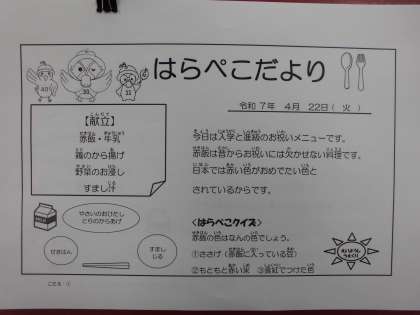 はらぺこだより
令和7年 4月 22日( 火 )
【献立】
赤飯・牛乳
鶏のから揚げ
野菜のお浸し
すまし汁
今日は入学と進級のお祝いメニューです。
赤飯は昔からお祝いには欠かせない料理です。
日本では赤い色がおめでたい色と
されているからです。
やさいのおひたし
とりのからあげ
せきはん
すまし
じる
<はらぺこクイズ>
赤飯の色はなんの色でしょう。
①ささげ(赤飯に入っている豆)
②もともと赤い米 ③食紅でつけた色